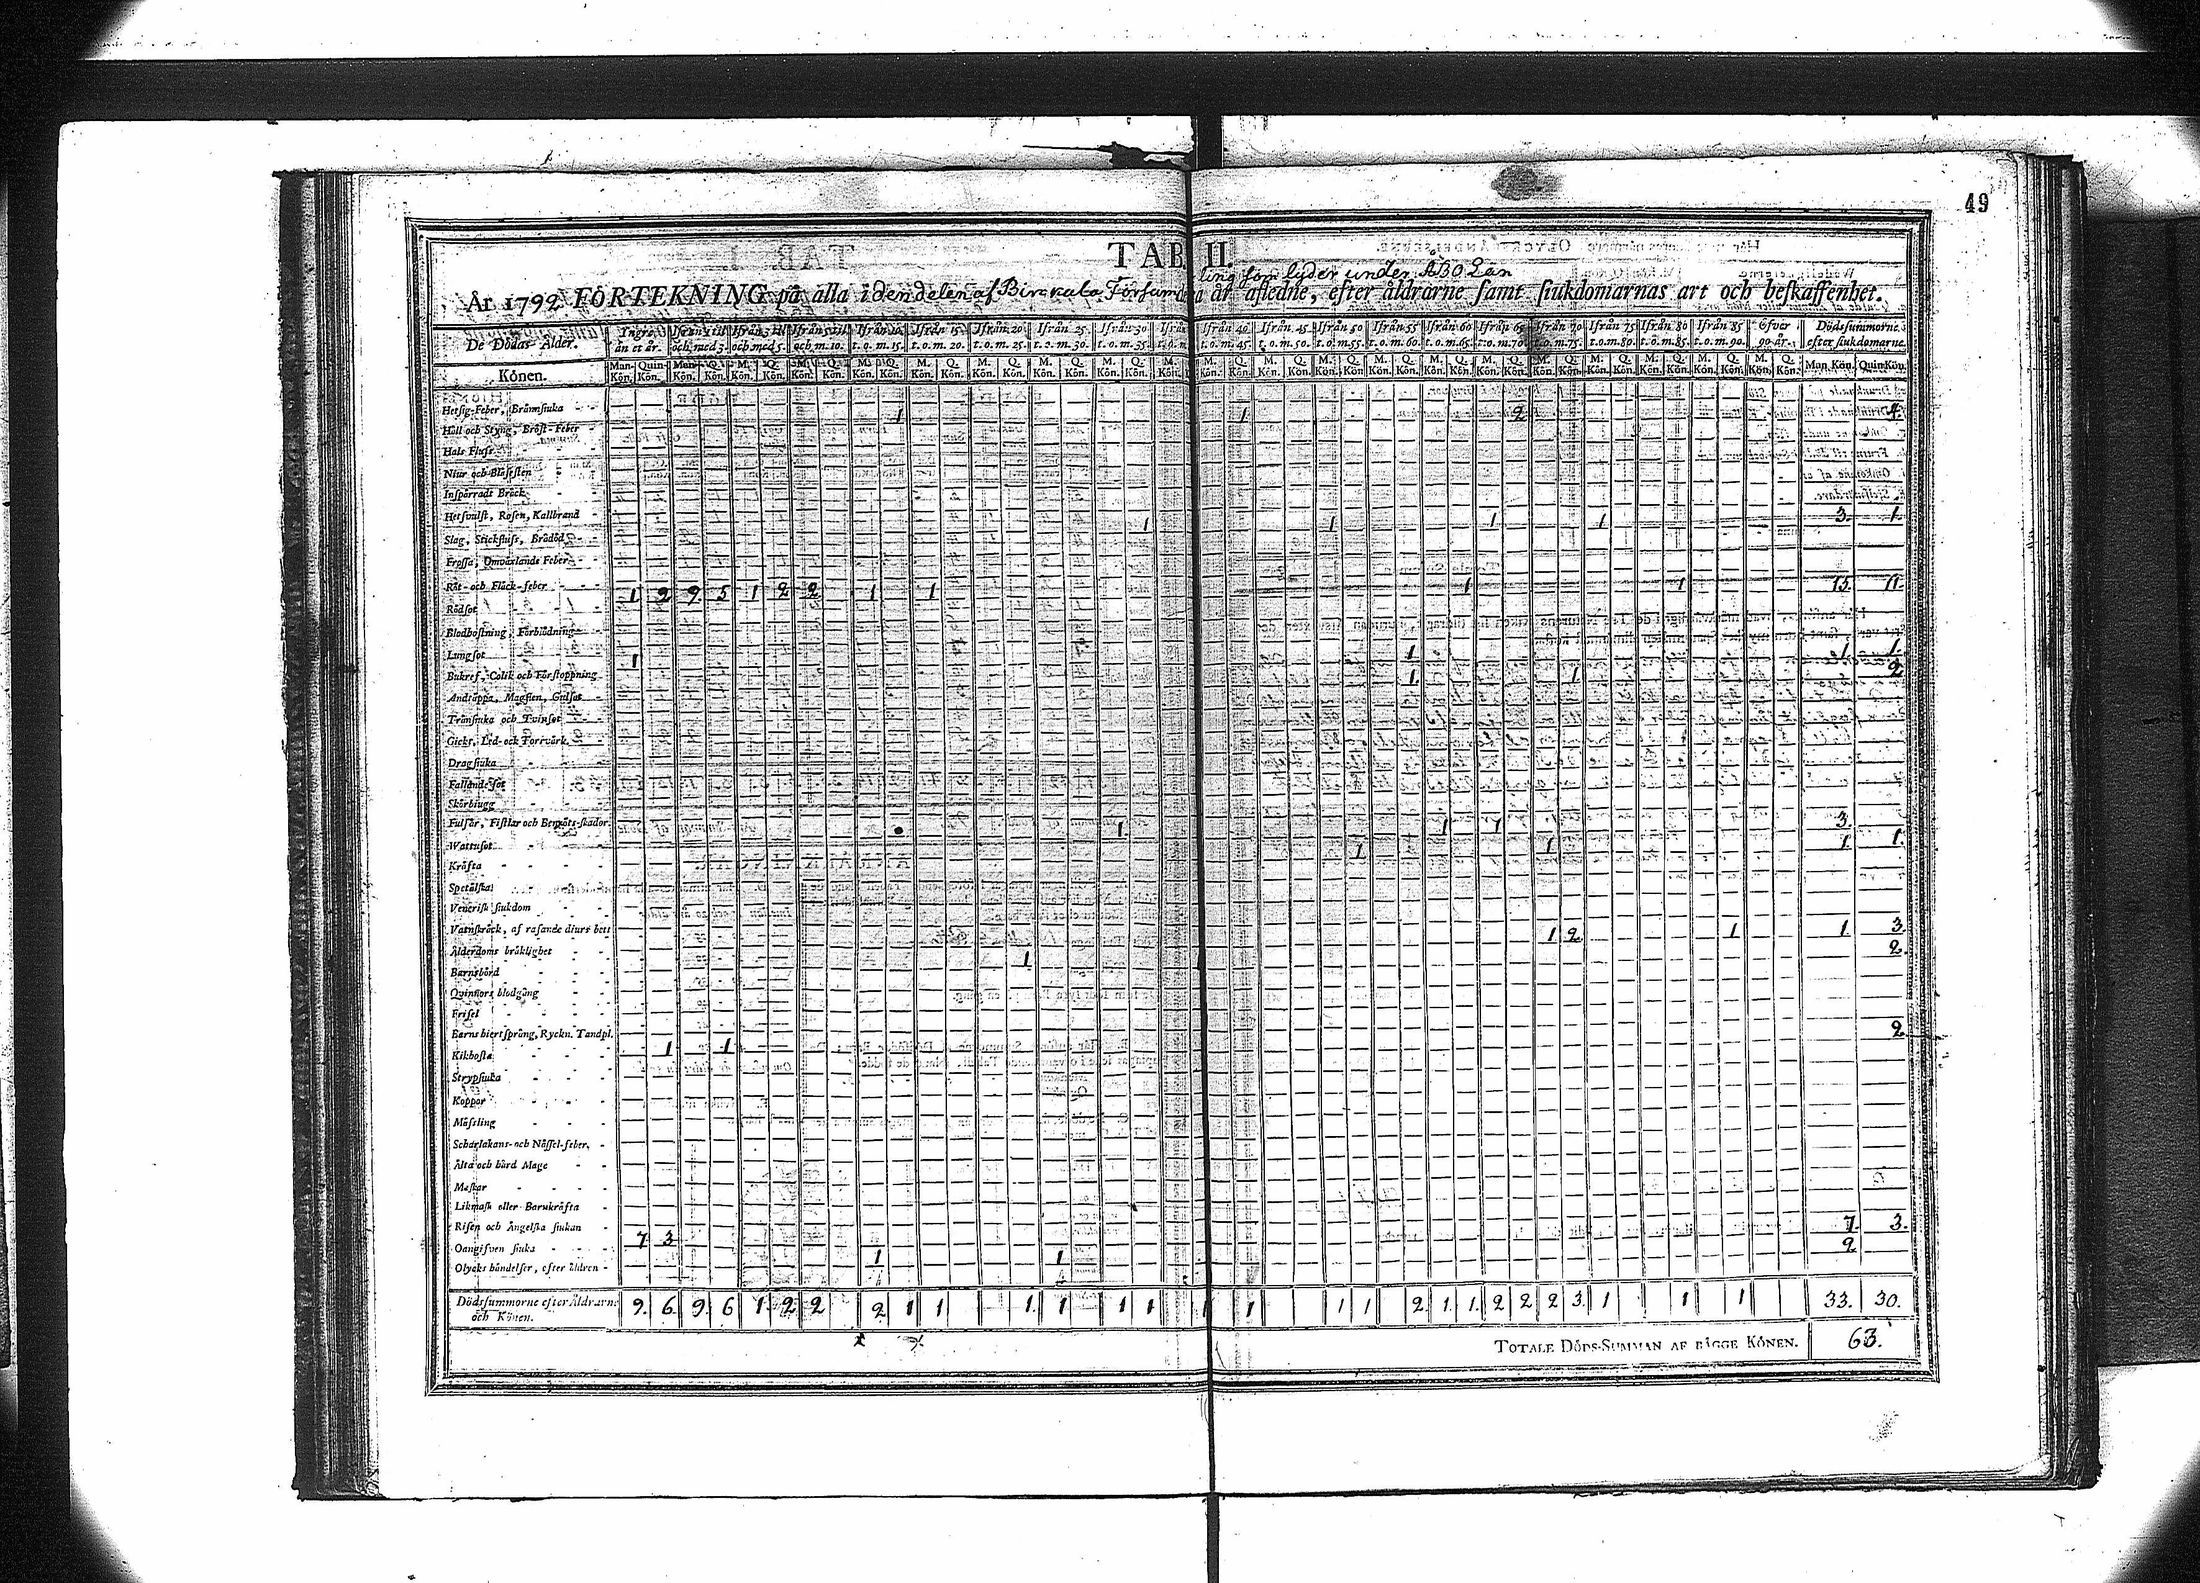 49
TAB II.
ling som lyder under ÅBO Län
År 1792 FÖRTEKNING på alla i den delen af Birckala Försam a år afledne, efter åldrarne samt siukdomarnas art och beskaffenhet.
De Dödas Ålder. Yngre än et år. Ifrån 1 til och med 3. Ifrån 3 til och med 5. Ifrån 5 til och m. 10. Ifrån 10 t. o. m. 15. Ifrån 15 t. o. m. 20. Ifrån 20 t. o. m. 25. Ifrån 25 t. o. m. 30. Ifrån 30 t. o. m. 35. Ifrån 40 t. o. m. 45. Ifrån 45 t. o. m. 50. Ifrån 50 t. o. m. 55. Ifrån 55 t. o. m. 60. Ifrån 60 t. o. m. 65. Ifrån 65 t. o. m. 70. Ifrån 70 t. o. m. 75. Ifrån 75 t. o. m. 80. Ifrån 80 t. o. m. 85. Ifrån 85 t. o. m. 90. Öfver 90 år. Dödssummorne efter siukdomarne.
Könen. Man-Kön. Quin-Kön. Man-Kön. Q. Kön. M. Kön. Q. Kön. M. Kön. Q. Kön. M. Kön. Q. Kön. M. Kön. Q. Kön. M. Kön. Q. Kön. M. Kön. Q. Kön. M. Kön. Q. Kön. Man Kön. Quin Kön.
Hetsig-Feber, Brännsiuka 1 1 2 4.
Håll och Styng, Bröst-Feber
Hals Fluss
Niur och Blåsesten
Inspärradt Bråck
Hetsvulst, Rosen, Kallbrand
Slag, Stickfluss, Brådöd 1 1 1 1 3. 1.
Frossa, Omväxlande Feber
Röt- och Fläck-feber
Rödsot 1 2 9 5 1 2 2 1 1 1 1 15. 11
Blodhostning, Förblödning
Lungsot 1 1 1. 1.
Bukref, Colik och Förstoppning 1 1 2
Andtäppa, Magsten, Gulsot
Trånsiuka och Tvinsot
Gickt, Led- ock Torrvärk
Dragsiuka
Fallandesot
Skörbiugg
Fulsår, Fistlar och Benröts-skador 1 1 1 3.
Wattusot 1 1 1. 1.
Kräfta
Spetälska
Venerisk siukdom
Vatnskräck, af rasande diurs bett
Ålderdoms bräklighet 1 2 1 1. 3.
Barnsbörd 1 2.
Qvinnors blodgång
Frisel
Barns hiertsprång, Ryckn. Tandpl.
Kikhosta 1 1 2
Strypsiuka
Koppor
Mässling
Scharlakans- och Nässel-feber
Älta och hård Mage
Maskar
Likmask eller Barnkräfta
Risen och Ängelska siukan
Oangifven siuka 7 3 7. 3.
Olycks händelser, efter åldren 1 1 2
Dödssummorne efter Åldrarne och Könen. 9. 6. 9. 6 1. 2 2 2 1 1 1. 1 1 1 1 1 1 1 2. 1. 1. 2 2 2 3. 1 1 1 33. 30.
TOTALE DÖDS-SUMMAN AF BÄGGE KÖNEN. 63.